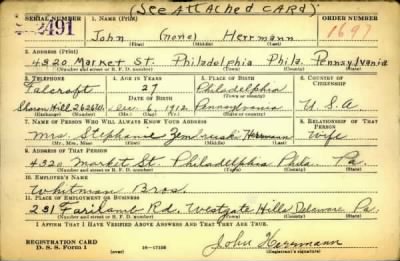 (See Attached Card)
SERIAL NUMBER 1. NAME (Print) ORDER NUMBER
2491 John (none) Herrmann 1697
(First) (Middle) (Last)
2. ADDRESS (Print)
4320 Market St. Philadelphia Phila. Pennsylvania
(Number and street or R. F. D. number) (Town) (County) (State)
3. TELEPHONE 4. AGE IN YEARS 5. PLACE OF BIRTH 6. COUNTRY OF CITIZENSHIP
27 Philadelphia
DATE OF BIRTH (Town or county)
Sharon Hill Dec 6, 1912 Pennsylvania U.S.A
(Mo.) (Day) (Yr.) (State or country)
7. NAME OF PERSON WHO WILL ALWAYS KNOW YOUR ADDRESS 8. RELATIONSHIP OF THAT PERSON
Mrs. Stephanie Herrmann Wife
(Mr., Mrs., Miss) (First) (Middle) (Last)
9. ADDRESS OF THAT PERSON
4320 Market St. Philadelphia Phila. Pa.
(Number and street or R. F. D. number) (Town) (County) (State)
10. EMPLOYER'S NAME
Whitman Bros.
11. PLACE OF EMPLOYMENT OR BUSINESS
231 Rd. Westgate Hills Delaware Pa.
(Number and street or R. F. D. number) (Town) (County) (State)
I AFFIRM THAT I HAVE VERIFIED ABOVE ANSWERS AND THAT THEY ARE TRUE.
REGISTRATION CARD
D. S. S. Form 1 16-17105 John Herrmann
(Registrant's signature)